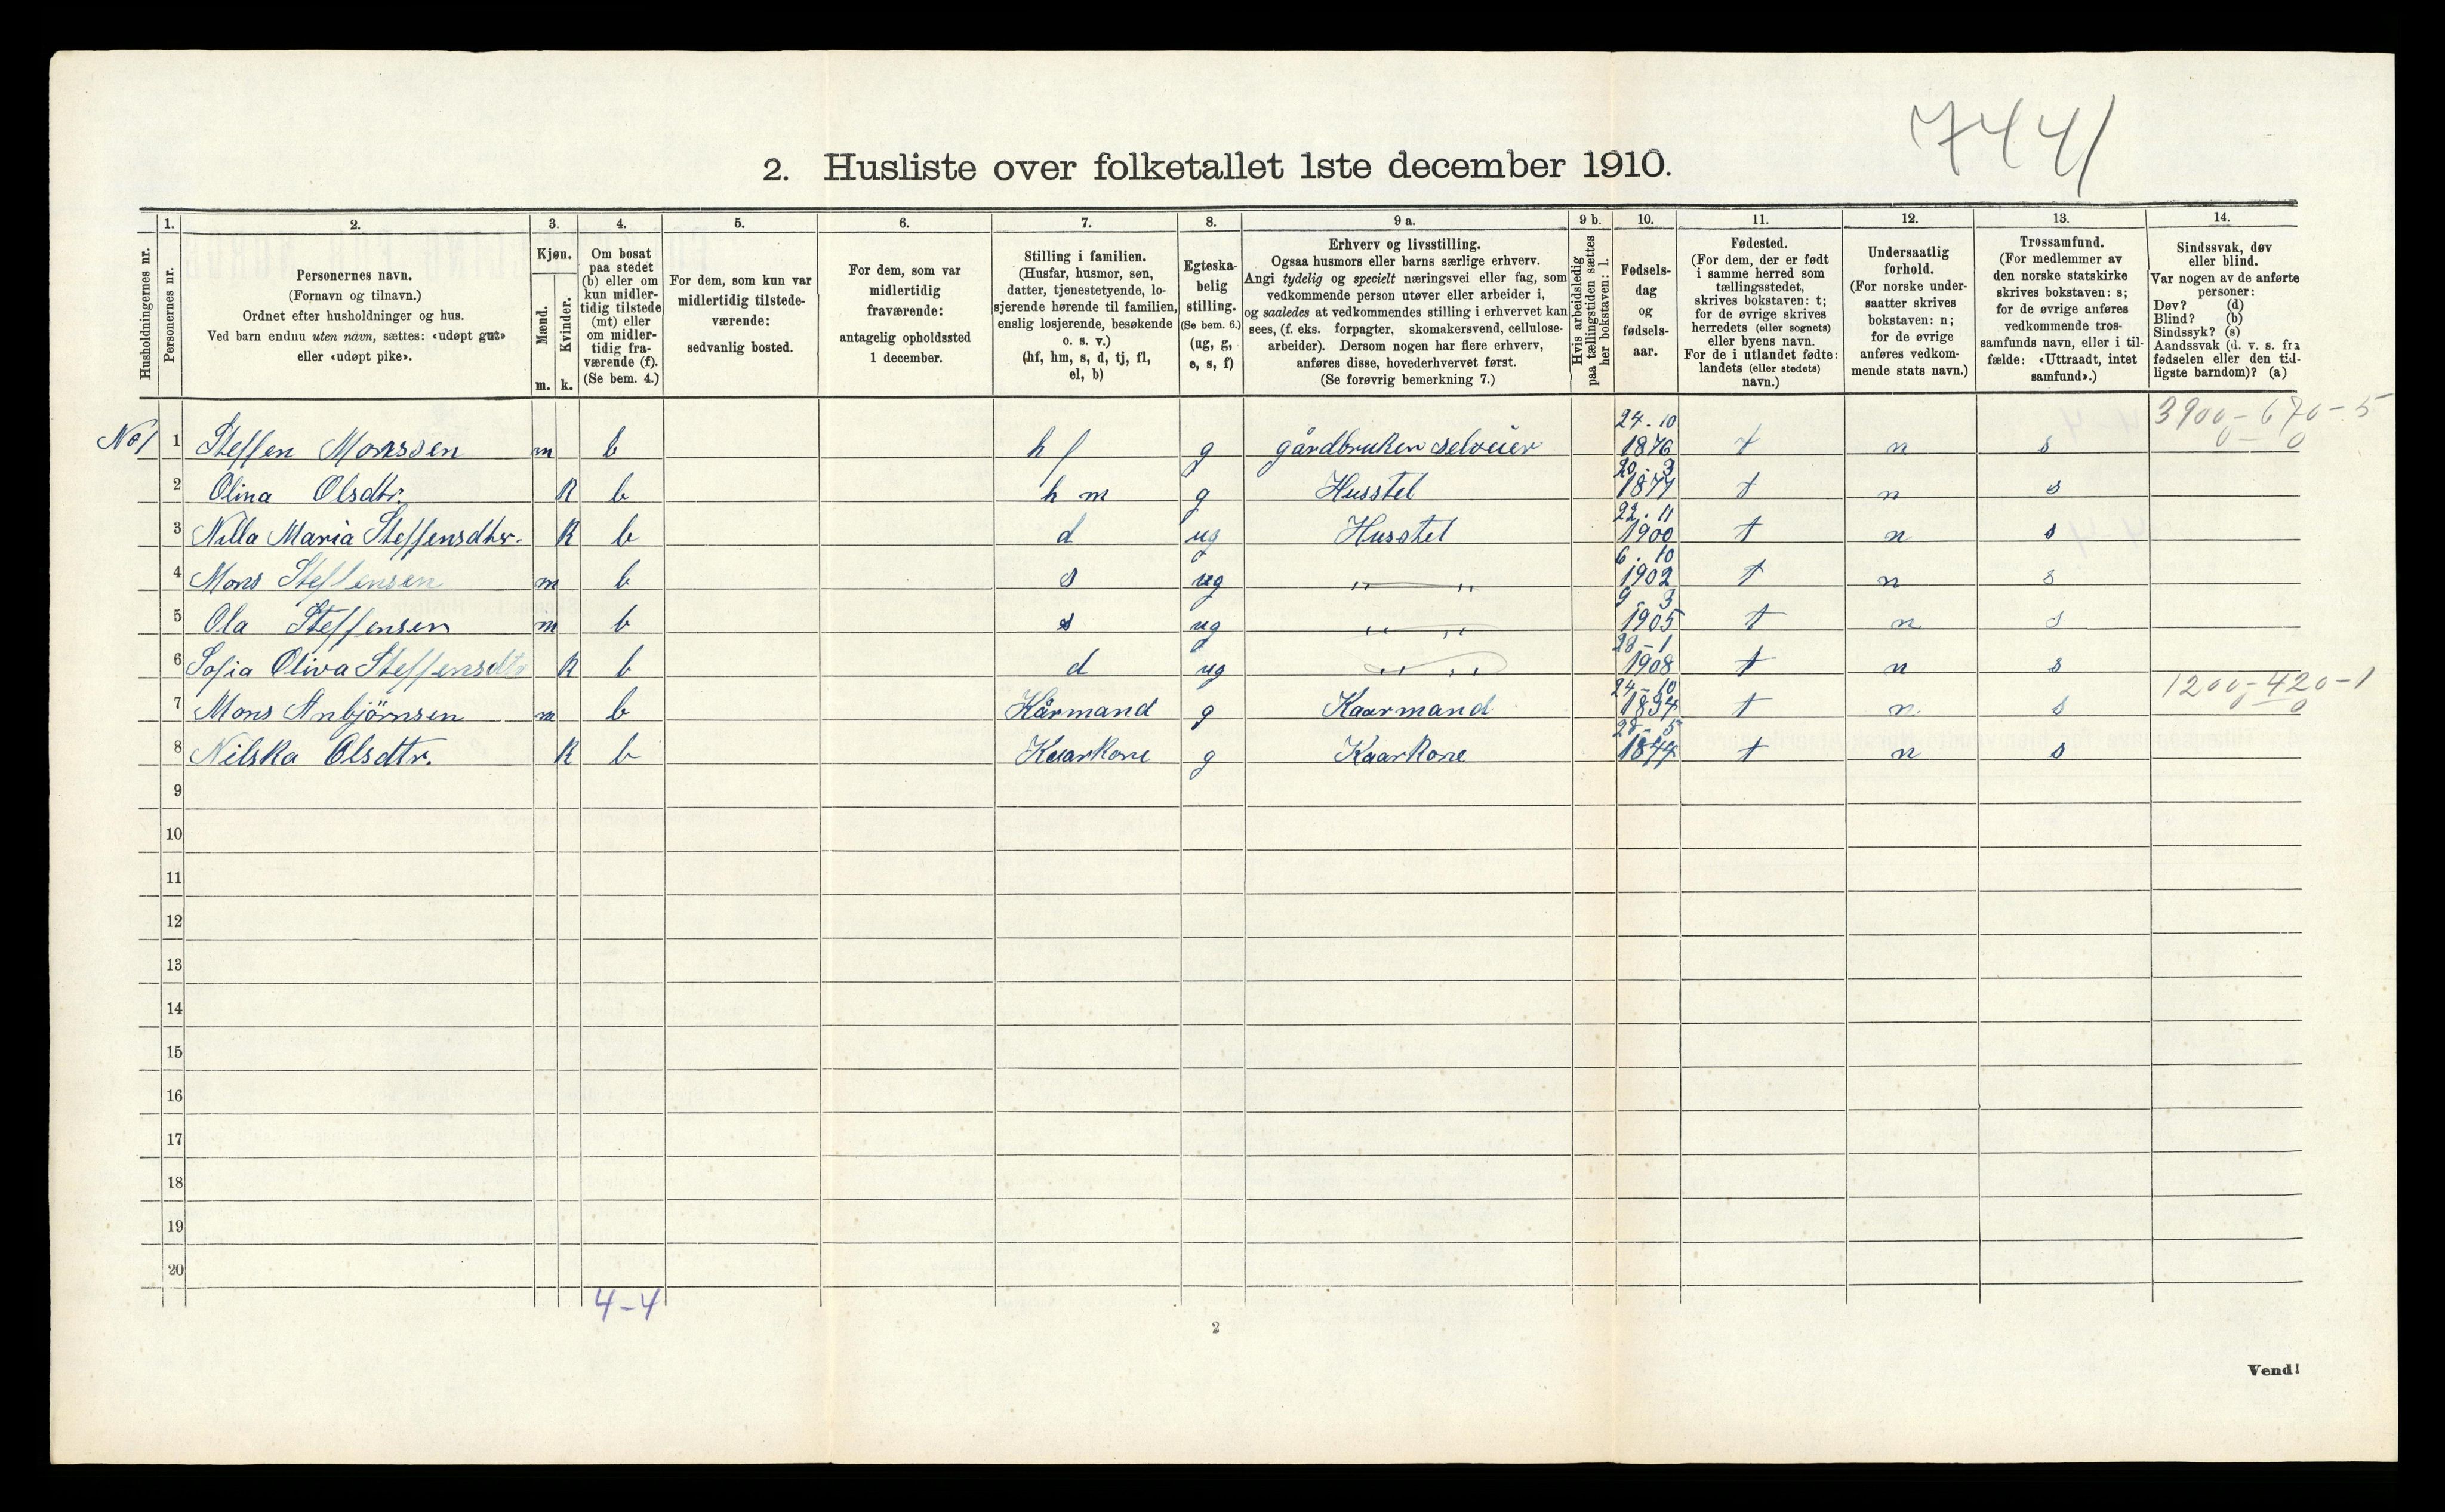 7441
2. Husliste over folketallet 1ste december 1910.
Husholdningernes nr.
1.
Personernes nr.
2.
Personernes navn.
(Fornavn og tilnavn.)
Ordnet efter husholdninger og hus.
Ved barn endnu uten navn, sættes: «udøpt gut»
eller «udøpt pike».
3.
Kjøn.
Mænd.
Kvinder.
m. k.
4.
Om bosat
paa stedet
(b) eller om
kun midler-
tidig tilstede
(mt) eller
om midler-
tidig fra-
værende (f).
(Se bem. 4.)
5.
For dem, som kun var
midlertidig tilstede-
værende:
sedvanlig bosted.
6.
For dem, som var
midlertidig
fraværende:
antagelig opholdssted
1 december.
7.
Stilling i familien.
(Husfar, husmor, søn,
datter, tjenestetyende, lo-
sjerende hørende til familien,
enslig losjerende, besøkende
o. s. v.)
(hf, hm, s, d, tj, fl,
el, b)
8.
Egteska-
belig
stilling.
(Se bem. 6.)
(ug, g,
e, s, f)
9 a.
Erhverv og livsstilling.
Ogsaa husmors eller barns særlige erhverv.
Angi tydelig og specielt næringsvei eller fag, som
vedkommende person utøver eller arbeider i,
og saaledes at vedkommendes stilling i erhvervet kan
sees, (f. eks. forpagter, skomakersvend, cellulose-
arbeider). Dersom nogen har flere erhverv,
anføres disse, hovederhvervet først.
(Se forøvrig bemerkning 7.)
9 b.
Hvis arbeidsledig
paa tællingstiden sættes
her bokstaven: l.
10.
Fødsels-
dag
og
fødsels-
aar.
11.
Fødested.
(For dem, der er født
i samme herred som
tællingsstedet,
skrives bokstaven: t;
for de øvrige skrives
herredets (eller sognets)
eller byens navn.
For de i utlandet fødte:
landets (eller stedets)
navn.)
12.
Undersaatlig
forhold.
(For norske under-
saatter skrives
bokstaven: n;
for de øvrige
anføres vedkom-
mende stats navn.)
13.
Trossamfund.
(For medlemmer av
den norske statskirke
skrives bokstaven: s;
for de øvrige anføres
vedkommende tros-
samfunds navn, eller i til-
fælde: «Uttraadt, intet
samfund».)
14.
Sindssvak, døv
eller blind.
Var nogen av de anførte
personer:
Døv? (d)
Blind? (b)
Sindssyk? (s)
Aandssvak (d. v. s. fra
fødselen eller den tid-
ligste barndom)? (a)
3900-670-5
0 - 0
No 1 1 Steffen Monssen m b h f g gårdbruker selveier 24.10 1876 t n s
2 Olina Olsdtr. K b h m g Husstel 20.3 1877 t n s
3 Nilla Maria Steffensdtr. K b d ug Husstel 22.11 1900 t n s
4 Mons Steffensen m b s ug ,, ,, 6.10 1902 t n s
5 Ola Steffensen m b s ug ,, ,, 9.3 1905 t n s
6 Sofia Oliva Steffensdtr K b d ug ,, ,, 28-1 1908 t n s
1200-420-1
0
7 Mons Anbjörnsen m b Kårmand g Kaarmand 24-10 1834 t n s
8 Nilska Olsdtr. K b Kaarkone g Kaarkone 1844 t n s
9
10
11
12
13
14
15
16
17
18
19
20
4-4
2
Vend!